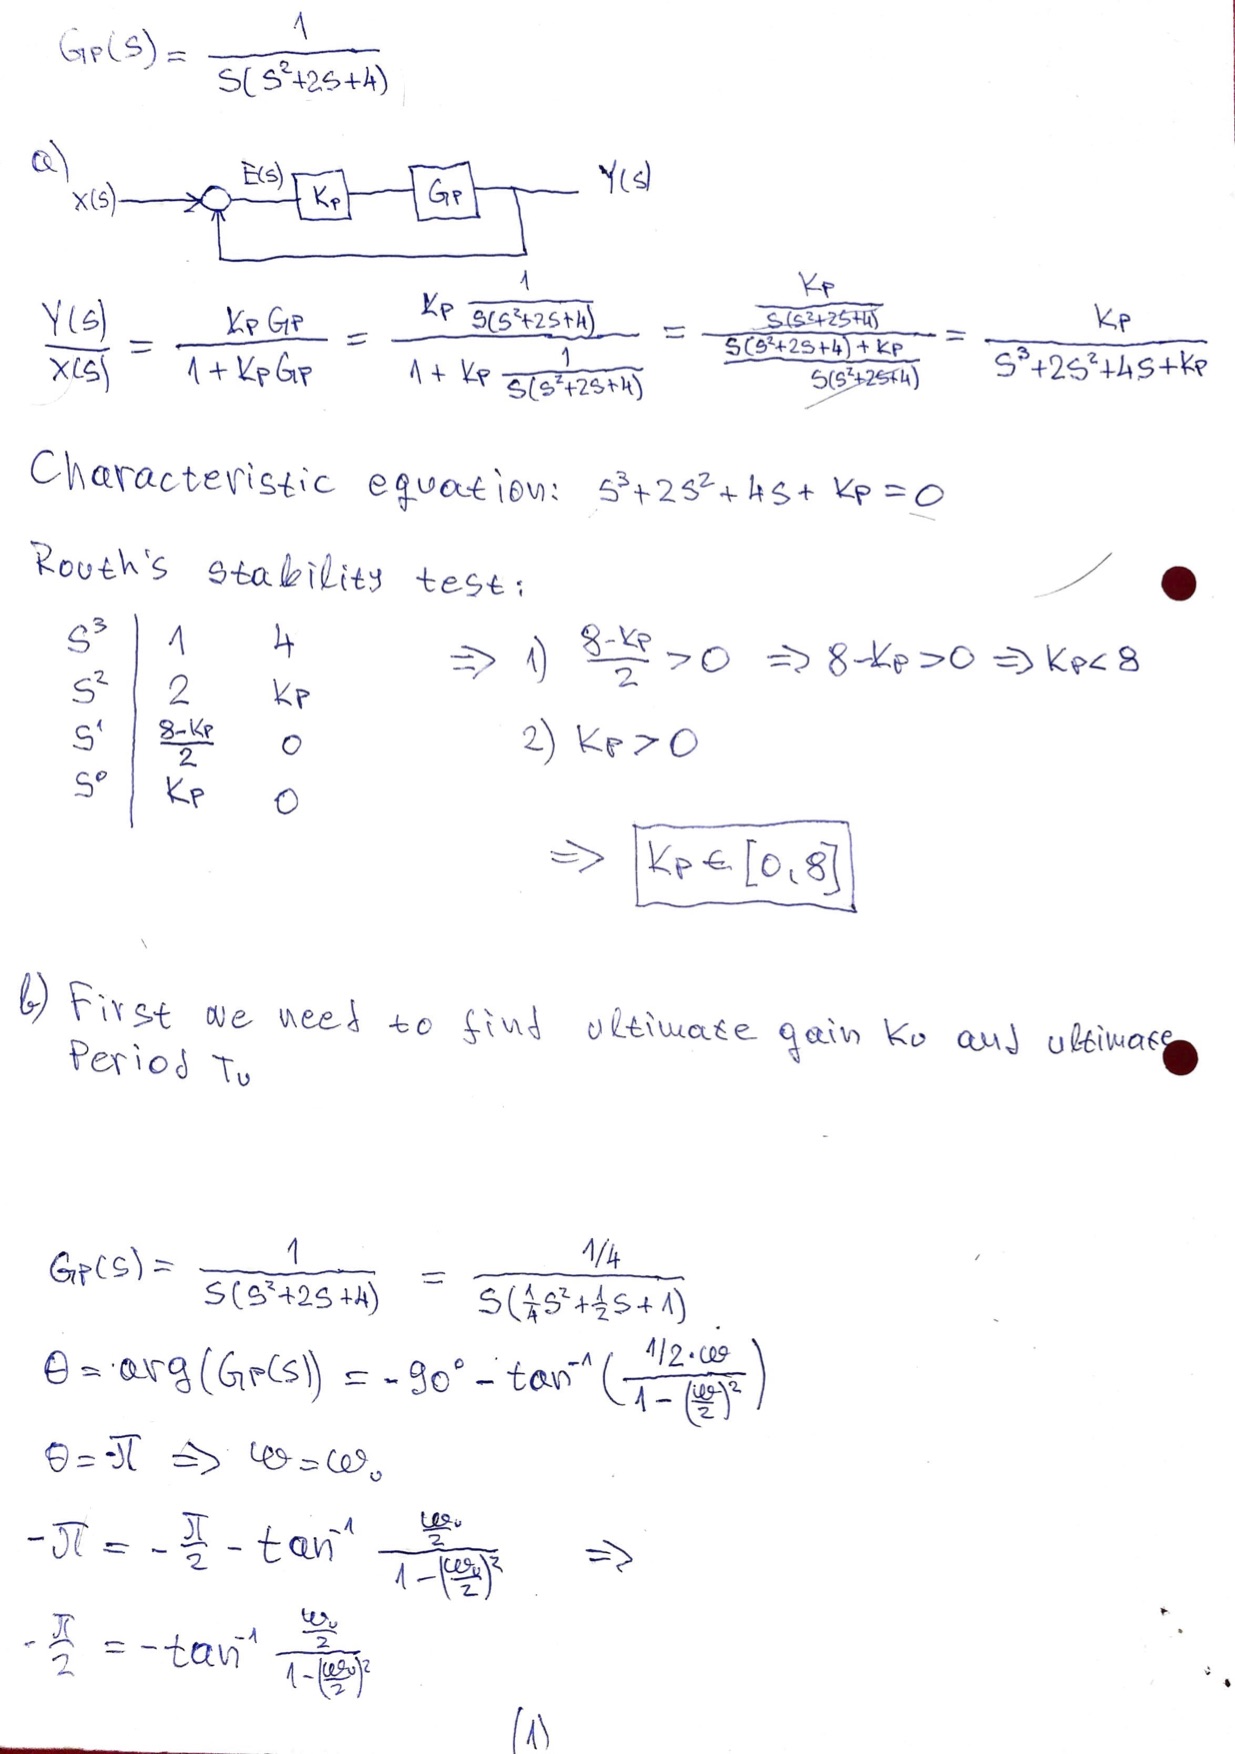 Gp(s) = 1 / (s(s²+2s+4))
a)
X(s) E(s) Kp Gp Y(s)
Y(s)/X(s) = KpGp / (1+KpGp) = (Kp 1/(s(s²+2s+4))) / (1+Kp 1/(s(s²+2s+4))) = (Kp/(s(s²+2s+4))) / ((s(s²+2s+4)+Kp)/(s(s²+2s+4))) = Kp / (s³+2s²+4s+Kp)
Characteristic equation: s³+2s²+4s+Kp=0
Routh's stability test:
s³ | 1 4 ⇒ 1) (8-Kp)/2 >0 ⇒ 8-Kp>0 ⇒ Kp<8
s² | 2 Kp
s¹ | (8-Kp)/2 0 2) Kp>0
s⁰ | Kp 0
⇒ Kp ∈ [0,8]
b) First we need to find ultimate gain Ku and ultimate
Period Tu
Gp(s) = 1 / (s(s²+2s+4)) = (1/4) / (s(1/4 s²+1/2 s+1))
θ = arg(Gp(s)) = -90° - tan⁻¹((1/2·ω) / (1-(ω/2)²))
θ=-π ⇒ ω=ωᵤ
-π = -π/2 - tan⁻¹ (ωᵤ/2) / (1-(ωᵤ/2)²) ⇒
-π/2 = -tan⁻¹ (ωᵤ/2) / (1-(ωᵤ/2)²)
(1)